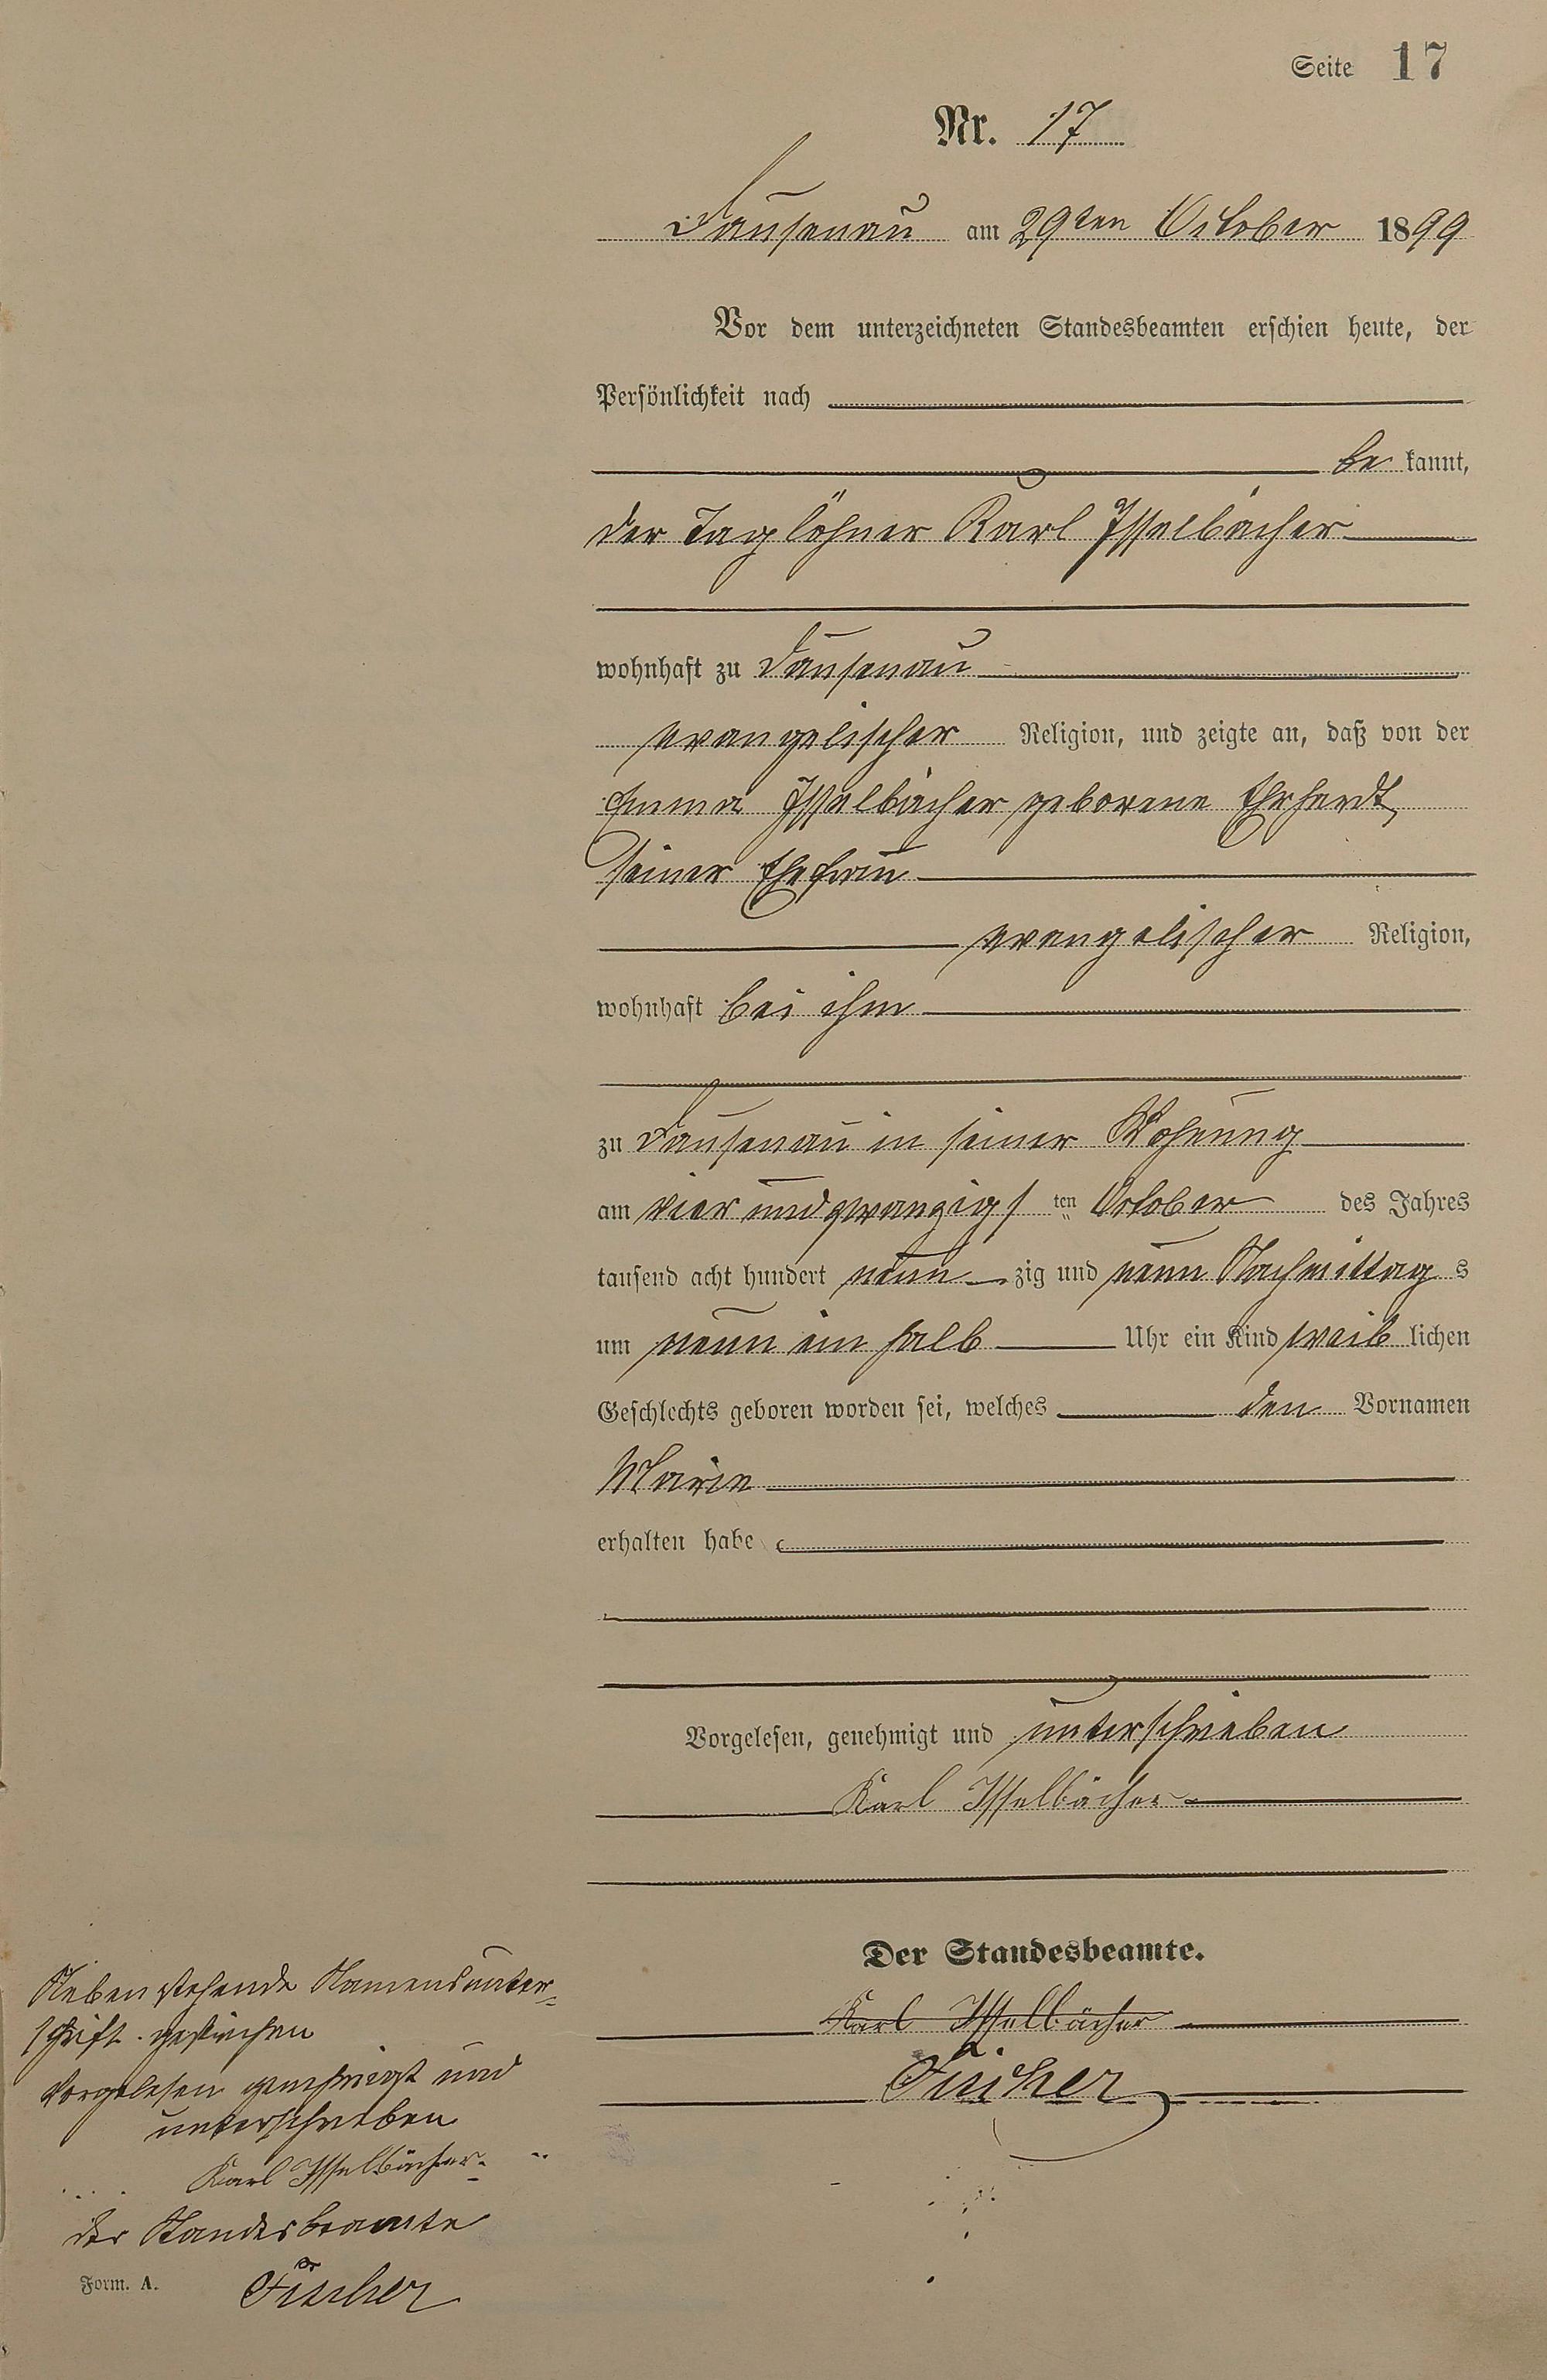 Seite 17
Nr. 17
Dausenau am 29ten October 1899
Vor dem unterzeichneten Standesbeamten erschien heute, der
Persönlichkeit nach
be kannt,
der Taglöhner Karl Isselbächer
wohnhaft zu Dausenau
evangelischer Religion, und zeigte an, daß von der
Emma Isselbächer geborene Ehrhardt,
seiner Ehefrau
evangelischer Religion,
wohnhaft bei ihm
zu Dausenau in seiner Wohnung
am vier und zwanzigs ten October des Jahres
tausend acht hundert neun zig und neun Nachmittag s
um neun ein halb Uhr ein Kind weib lichen
Geschlechts geboren worden sei, welches den Vornamen
Marie
erhalten habe
Vorgelesen, genehmigt und unterschrieben
Karl Isselbächer
Der Standesbeamte.
Karl Isselbächer
Fischer
Nebenstehende Namensunter=
schrift gestrichen
Vorgelesen genehmigt und
unterschrieben
Karl Isselbächer
Der Standesbeamte
Fischer
Form. A.